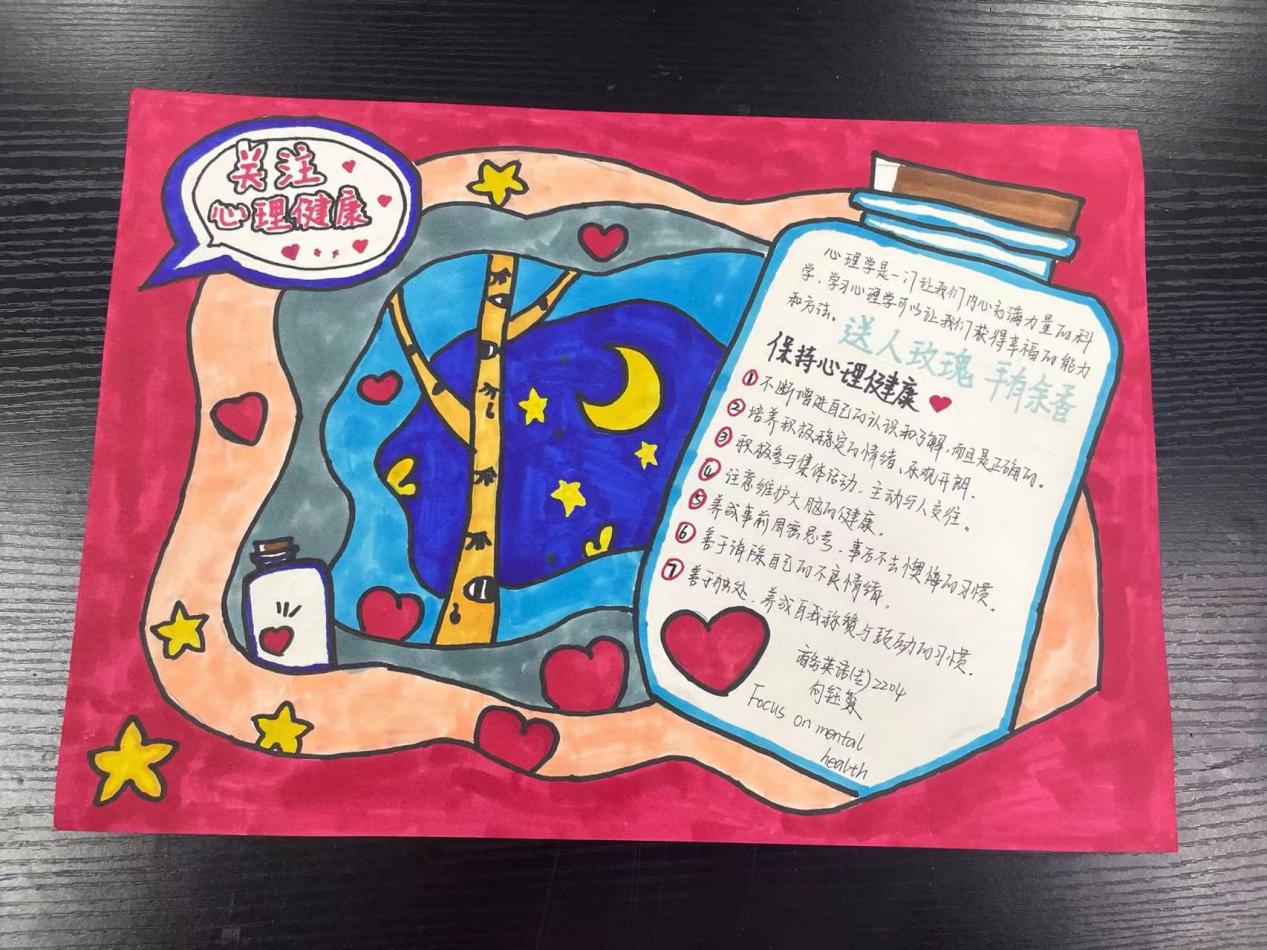 关注
心理健康
心理学是一门让我们内心充满力量的科
学,学习心理学可以让我们获得幸福的能力
和方法。
送人玫瑰 手有余香
保持心理健康
①不断增进自己的认识和了解,而且是正确的。
②培养积极稳定的情绪、乐观开朗.
③积极参与集体活动,主动与人交往。
④注意维护大脑的健康。
⑤养成事前周密思考,事后不去懊悔的习惯。
⑥善于消除自己的不良情绪。
⑦善于独处,养成自我称赞与鼓励的习惯。
商务英语(专)2204
何钰
Focus on mental
health